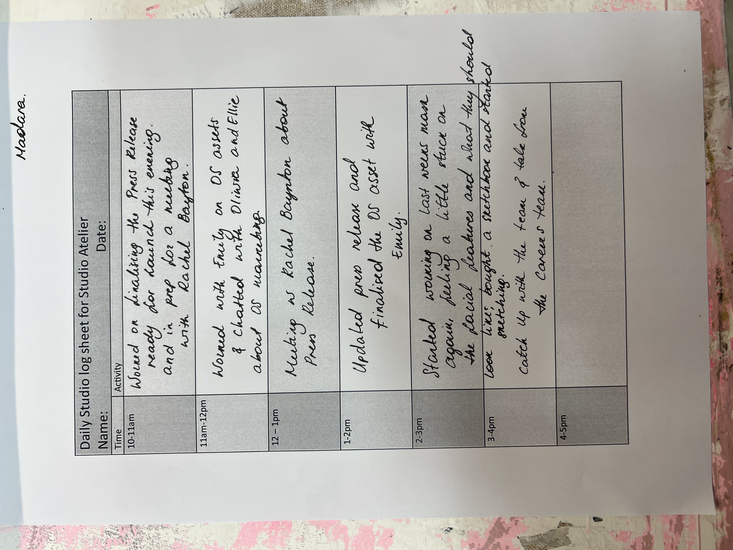 Madara.
Daily Studio log sheet for Studio Atelier
Name: Date:
Time Activity
10-11am
Worked on finalising the Press Release
ready for launch this evening.
and in prep for a meeting
with Rachel Bayton.
11am-12pm
Worked with Emily on OS assets
& chatted with Olivia and Ellie
about OS marketing
12 – 1pm
Meeting w Rachel Baynton about
Press Release.
1-2pm
Updated press release and
finalised the OS asset with
Emily.
2-3pm
Started working on last weeks mask
again, feeling a little stuck on
the facial features and what they should
look like; bought a sketchbook and started
sketching
3-4pm
Catch up with the team & talk from
the Careers team.
4-5pm